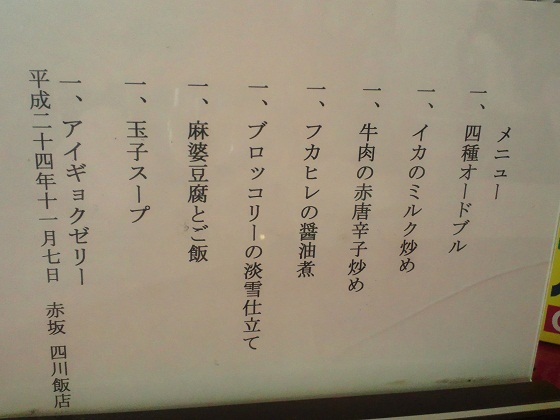 メニュー
一、四種オードブル
一、イカのミルク炒め
一、牛肉の赤唐辛子炒め
一、フカヒレの醤油煮
一、ブロッコリーの淡雪仕立て
一、麻婆豆腐とご飯
一、玉子スープ
一、アイギョクゼリー
平成二十四年十一月七日　赤坂 四川飯店